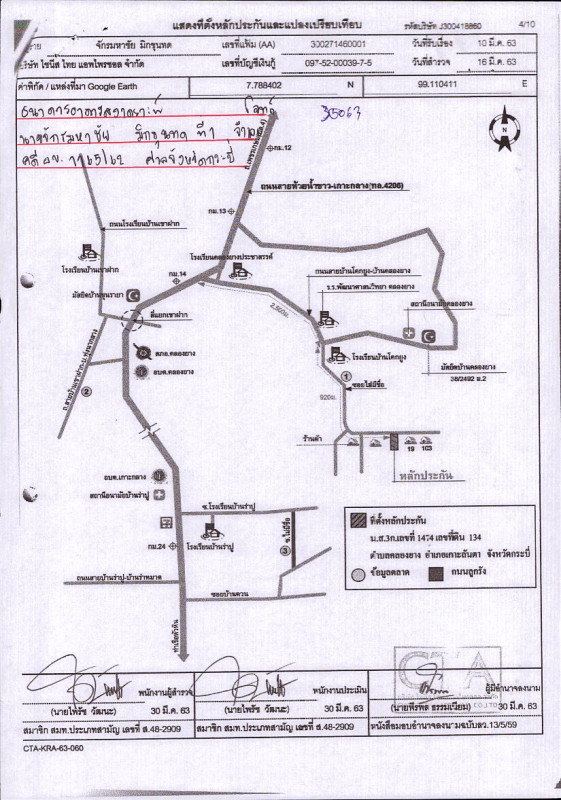 แสดงที่ตั้งหลักประกันและแปลงเปรียบเทียบ
รหัสบริษัท J300418860
4/10
จักรมหาชัย มิกขุนทด
เลขที่แฟ้ม (AA)
300271460001
วันที่รับเรื่อง
10 มี.ค. 63
บริษัท ไซน์ส ไทย แอพไพรซอล จำกัด
เลขที่บัญชีเงินกู้
097-52-00039-7-5
วันที่สำรวจ
16 มี.ค. 63
ค่าพิกัด / แหล่งที่มา Google Earth
7.788402
N
99.110411
E
ธนาคารอาคารสงเคราะห์
โจทก์
315063
N
กม.12
ถนนสายห้วยน้ำขาว-เกาะกลาง(ทล.4206)
ถนนโรงเรียนบ้านเขาฝาก
กม.13
โรงเรียนคลองยางประชาสรรค์
โรงเรียนบ้านเขาฝาก
กม.14
ถนนสายบ้านโคกยูง-บ้านคลองยาง
ร.ร.พัฒนาศาสนวิทยา คลองยาง
มัสยิดบ้านขุนรายา
สถานีอนามัยคลองยาง
สี่แยกเขาฝาก
2,800ม.
สภอ.คลองยาง
โรงเรียนบ้านโคกยูง
มัสยิดบ้านคลองยาง
38/2492 ม.2
อบต.คลองยาง
1
2
ซอยไม่มีชื่อ
920ม.
ร้านค้า
19
103
หลักประกัน
อบต.เกาะกลาง
สถานีอนามัยบ้านร่าปู
ซ.โรงเรียนบ้านร่าปู
ซ.ไม่มีชื่อ
กม.24
โรงเรียนบ้านร่าปู
3
ที่ตั้งหลักประกัน
น.ส.3ก.เลขที่ 1474 เลขที่ดิน 134
ตำบลคลองยาง อำเภอเกาะลันตา จังหวัดกระบี่
ข้อมูลตลาด
ถนนลูกรัง
ถนนสายบ้านร่าปู-บ้านร่าหมาด
ซอยบ้านควน
ท่าเรือหัวหิน
CTA
CO.,LTD
พนักงานผู้สำรวจ
พนักงานประเมิน
ผู้มีอำนาจลงนาม
(นายไพรัช วัฒนะ)
30 มี.ค. 63
(นายไพรัช วัฒนะ)
30 มี.ค. 63
(นายพีรพัด ธรรมเนียม)
30 มี.ค. 63
สมาชิก สมท.ประเภทสามัญ เลขที่ ส.48-2909
สมาชิก สมท.ประเภทสามัญ เลขที่ ส.48-2909
หนังสือมอบอำนาจลงนามฉบับลว.13/5/59
CTA-KRA-63-060